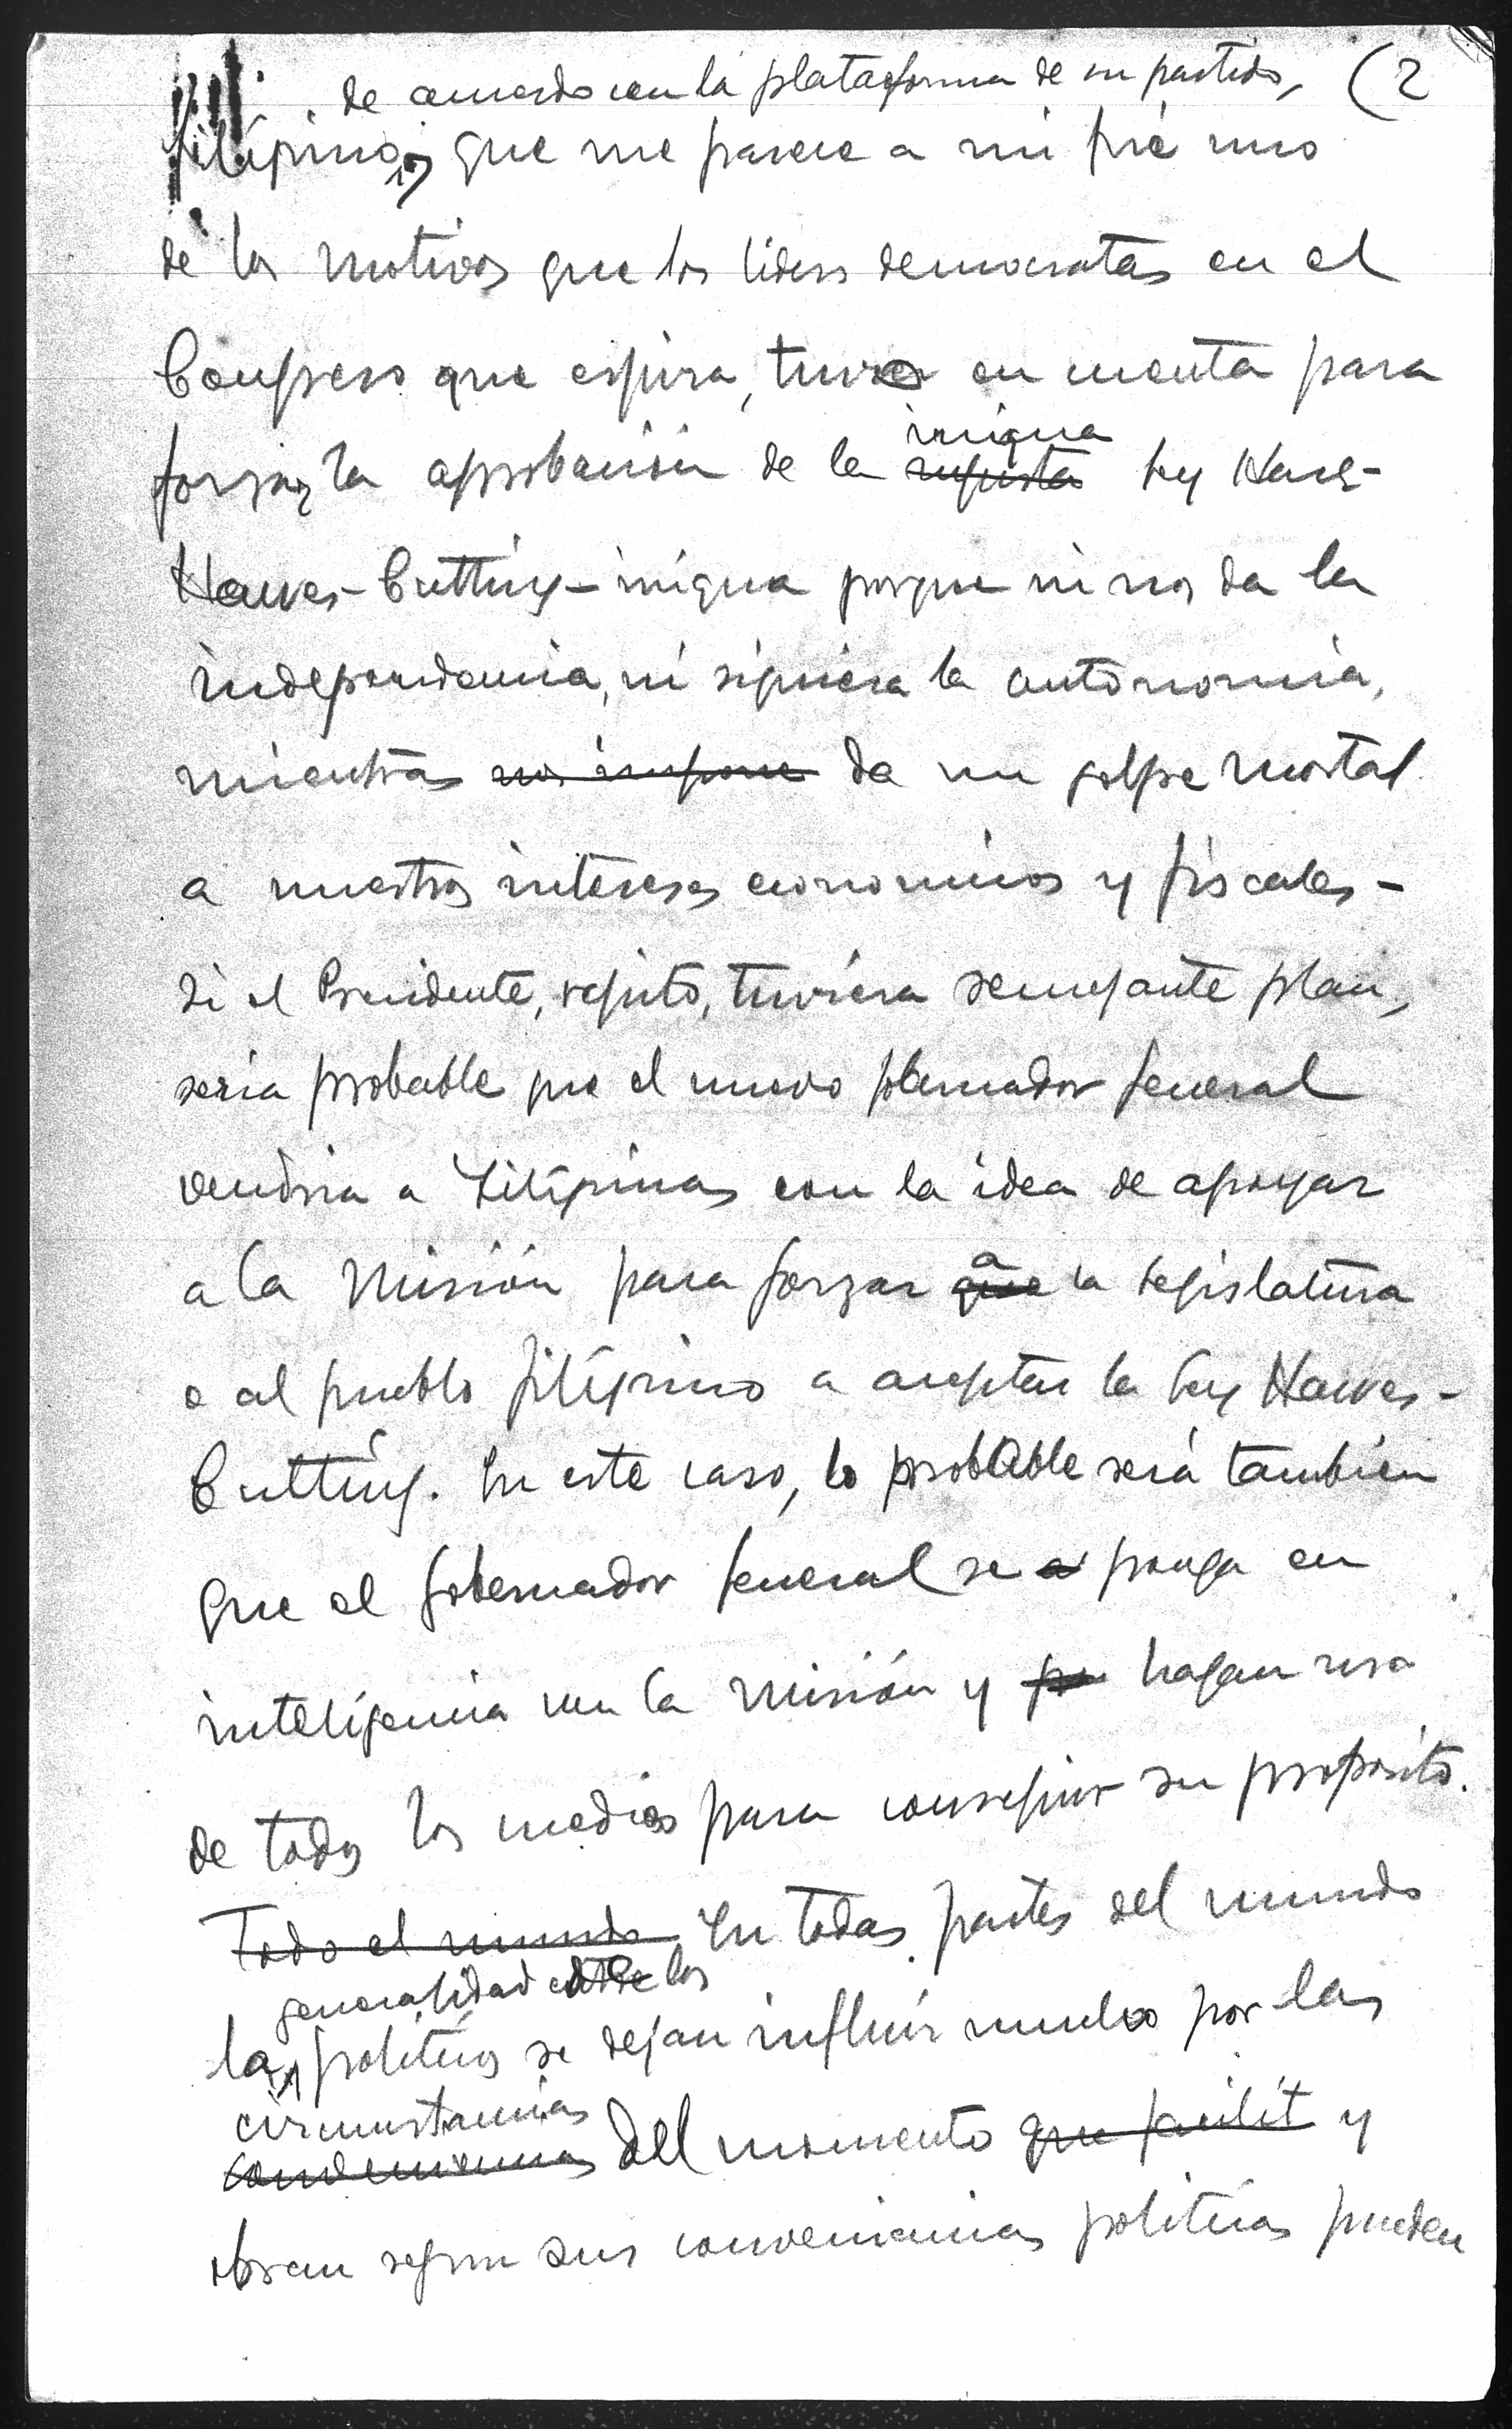 de acuerdo con la plataforma de su partido, (2
filipino, que me parece a mi fué uno
de los motivos que los líders democratas en el
Congreso que espira, tuvo en cuenta para
inicua
forzar la aprobación de la injusta ley Hare-
Hawes-Cutting - inicua porque ni nos da la
independencia, ni siquiera la autonomia,
mientras nos impone da un golpe mortal
a nuestros intereses economicos y fiscales -
Si el Presidente, repito, tuviera semejante plan,
seria probable que el nuevo gobernador general
vendria a Filipinas con la idea de apoyar
a
a la Misión para forzar que la Legislatura
o al pueblo filipino a aceptar la ley Hawes-
Cutting. En este caso, lo probable será tambien
que el gobernador general se a ponga en
inteligencia con la Misión y hagan uso
de todos los medios para conseguir su proposito.
Todo el mundo En todas partes del mundo
generalidad de los
la politicos se dejan influir mucho por las
circunstancias
conveniencias del momento que facilit y
obran segun sus conveniencias politicas pueden